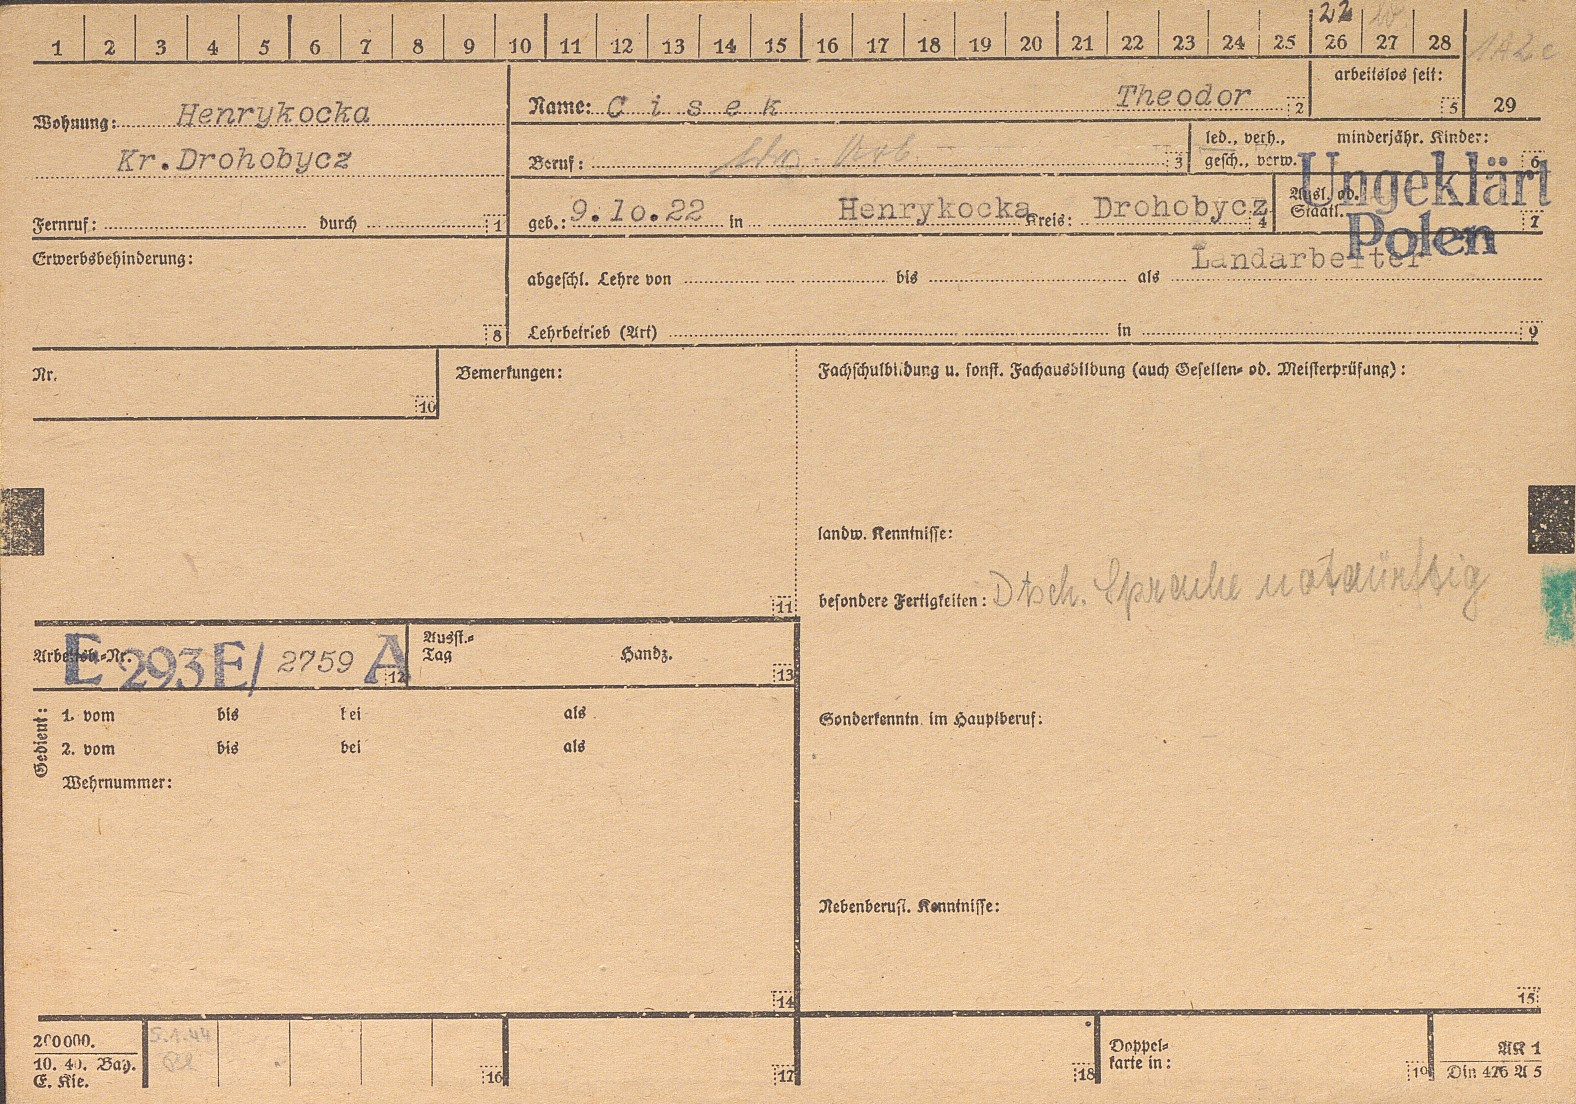 22
1 2 3 4 5 6 7 8 9 10 11 12 13 14 15 16 17 18 19 20 21 22 23 24 25 26 27 28
arbeitslos seit:
5
29
Wohnung: Henrykocka
Kr.Drohobycz
Name: C i s e k Theodor 2
Beruf: 3
led., verh.,
gesch., verw.
minderjähr. Kinder:
6
Fernruf: durch 1
geb.: 9.10.22 in Henrykocka Kreis: Drohobycz 4
Ausl. od.
Staatl.
7
Ungeklärt
Polen
Erwerbsbehinderung:
8
Landarbeiter
abgeschl. Lehre von bis als
Lehrbetrieb (Art) in 9
Nr.
10
Bemerkungen:
11
Fachschulbildung u. sonst. Fachausbildung (auch Gesellen- od. Meisterprüfung):
landw. Kenntnisse:
besondere Fertigkeiten: Dtsch. Sprache notdürftig
Arbeitsb.-Nr. E 293E/ 2759 A 12
Ausst.-
Tag
Handz.
13
Gedient:
1. vom bis bei als
2. vom bis bei als
Wehrnummer:
14
Sonderkenntn. im Hauptberuf:
Nebenberufl. Kenntnisse:
15
200000.
10. 40. Bay.
E. Kie.
5.1.44
16
17
18
Doppel-
karte in:
19
AK 1
Din 476 A 5